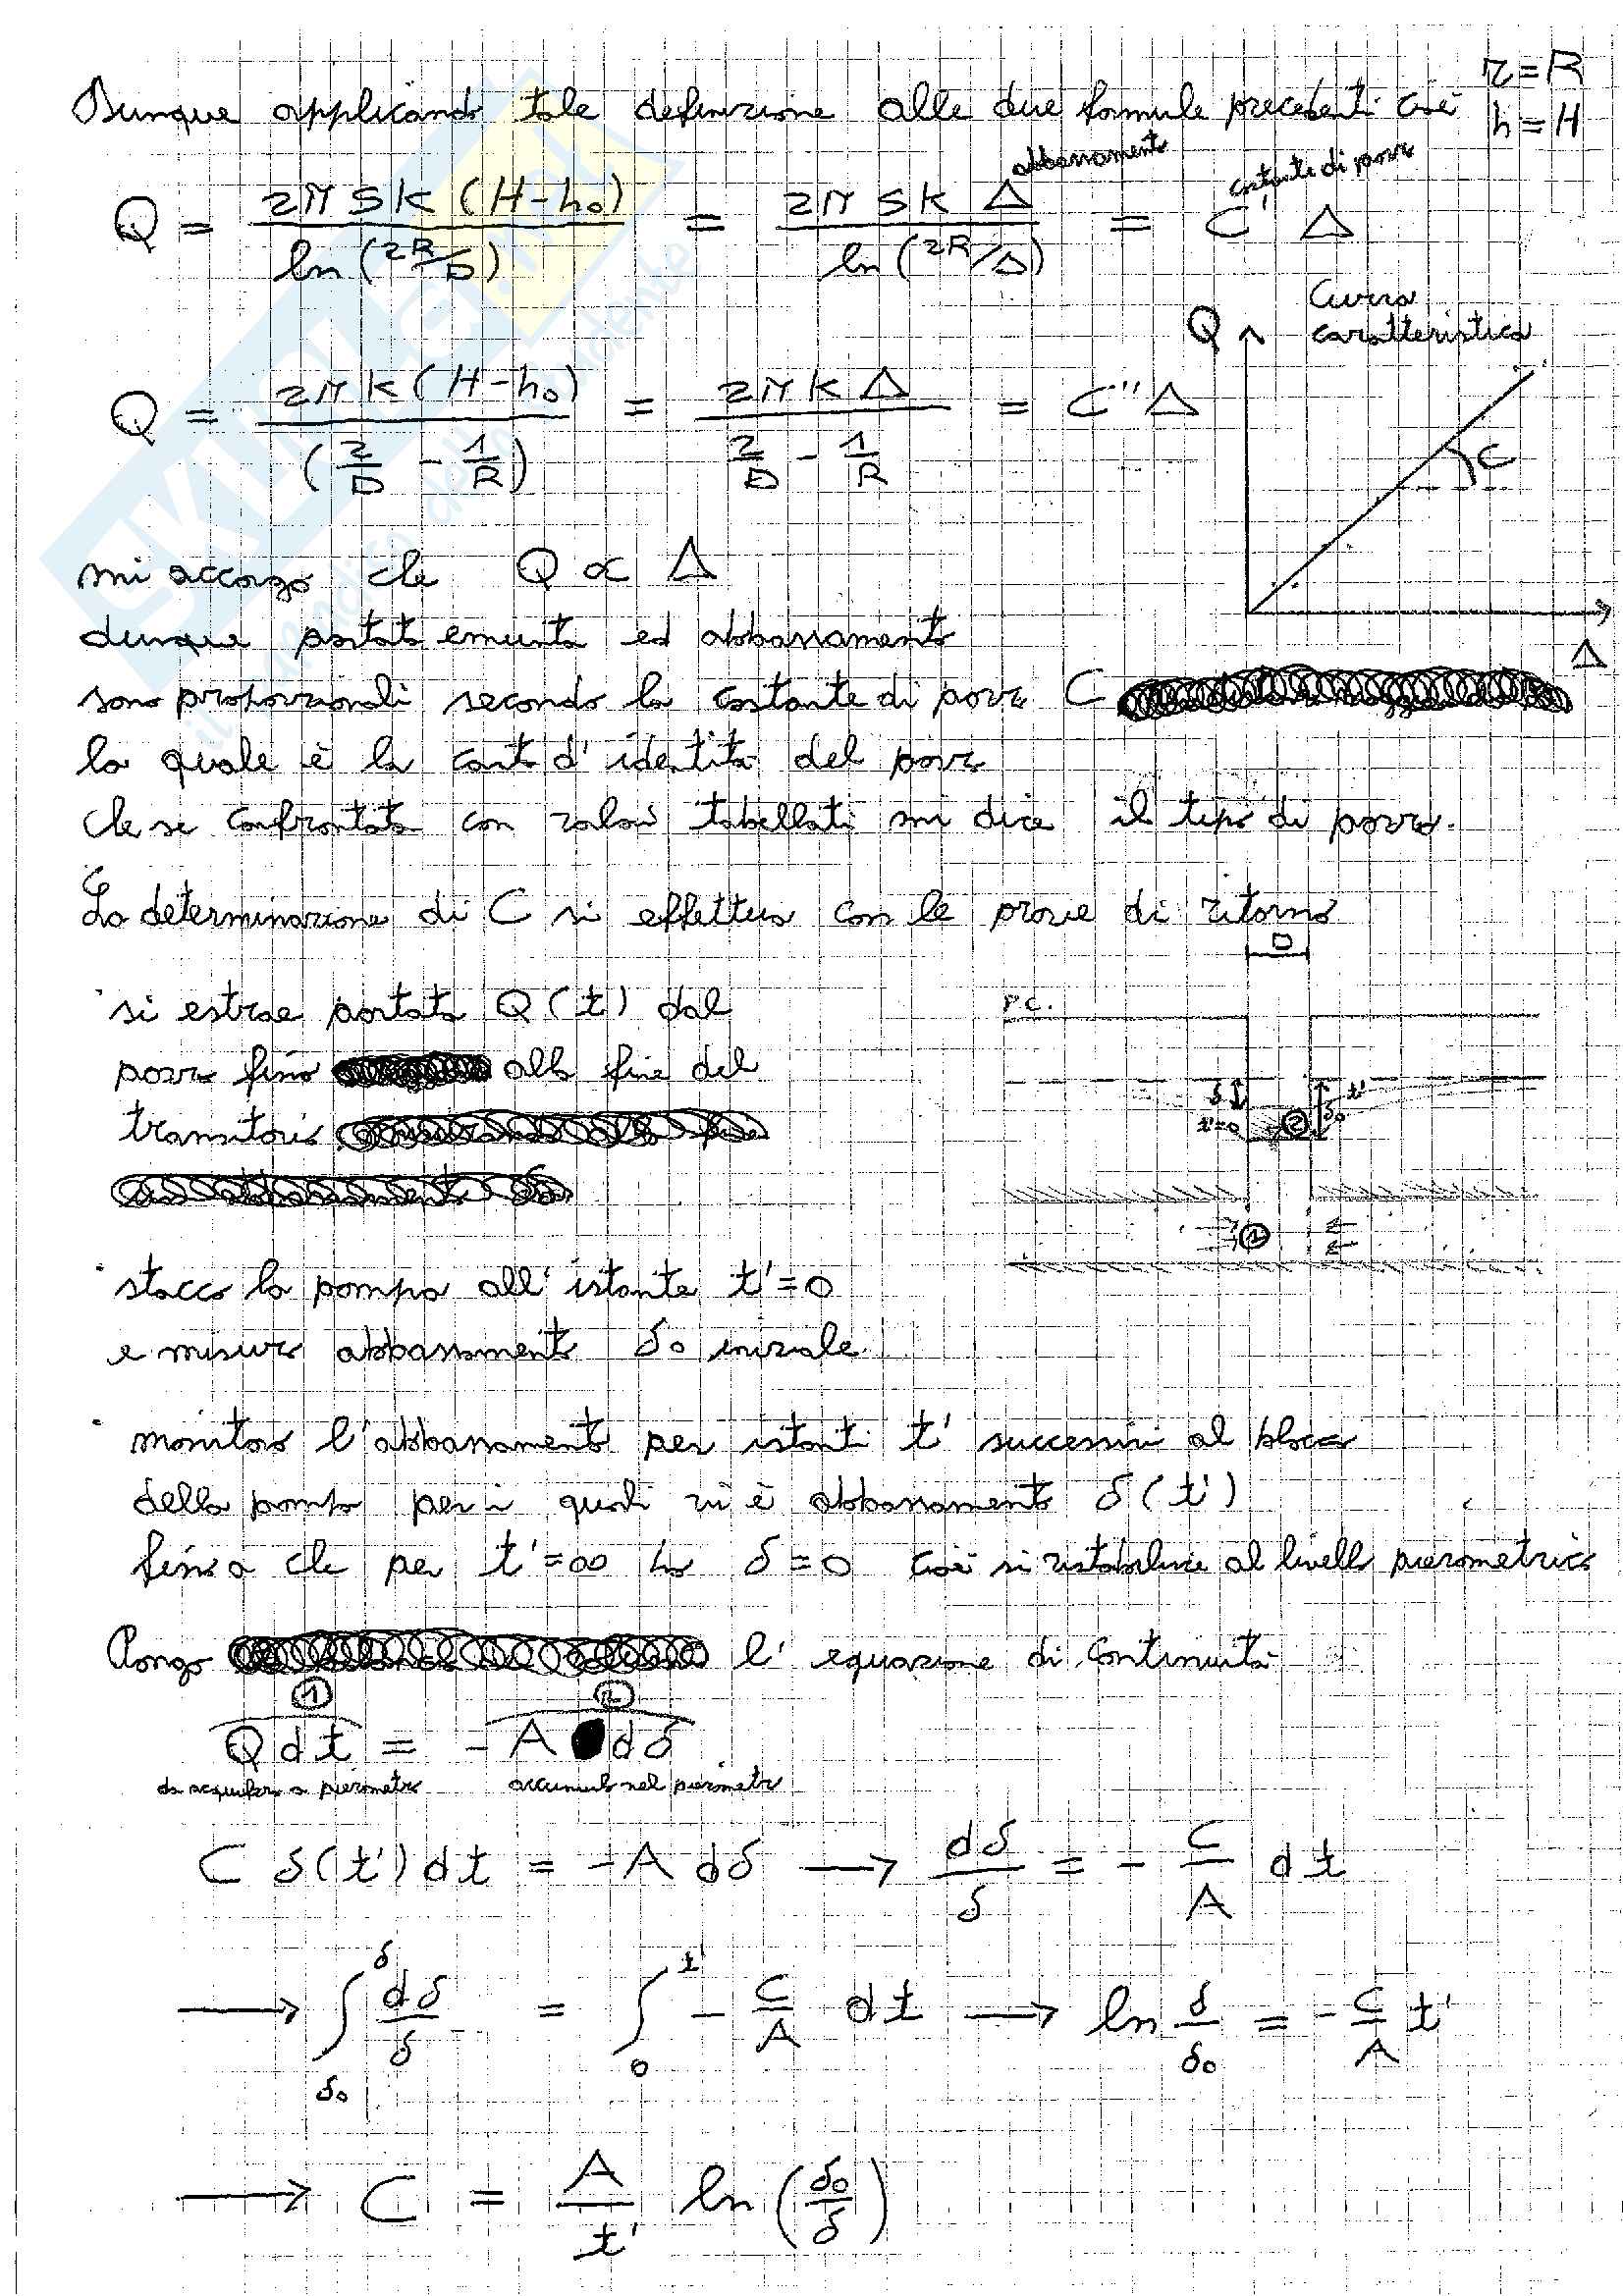 Dunque applicando tale definizione alle due formule precedenti cioè r=R
h=H
abbassamento
costante di pozzo
Q = 2π S K (H-h₀) / ln(2R/D) = 2π S K Δ / ln(2R/D) = C' Δ
Curva
caratteristica
Q
Q = 2π K (H-h₀) / (2/D - 1/R) = 2π K Δ / (2/D - 1/R) = C'' Δ
C
Δ
mi accorgo che Q ∝ Δ
dunque portata emunta ed abbassamento
sono proporzionali secondo la costante di pozzo C
la quale è la carta d'identità del pozzo
che se confrontata con valori tabellati mi dice il tipo di pozzo.
La determinazione di C si effettua con le prove di ritorno
D
si estrae portata Q(t) dal
P.C.
pozzo fino alla fine del
δ t'
t'=0 ② δ₀
transitorio
①
stacco la pompa all'istante t'=0
e misuro abbassamento δ₀ iniziale.
monitoro l'abbassamento per istanti t' successivi al blocco
della pompa per i quali vi è abbassamento δ(t')
fino a che per t'=∞ ho δ=0 cioè si ristabilisce al livello piezometrico
Pongo l'equazione di continuità
① ②
Q dt = - A dδ
da acquifero a piezometro accumulo nel piezometro
C δ(t') dt = -A dδ → dδ/δ = - C/A dt
→ ∫_δ₀^δ dδ/δ = ∫_0^t' - C/A dt → ln δ/δ₀ = - C/A t'
→ C = A/t' ln(δ₀/δ)